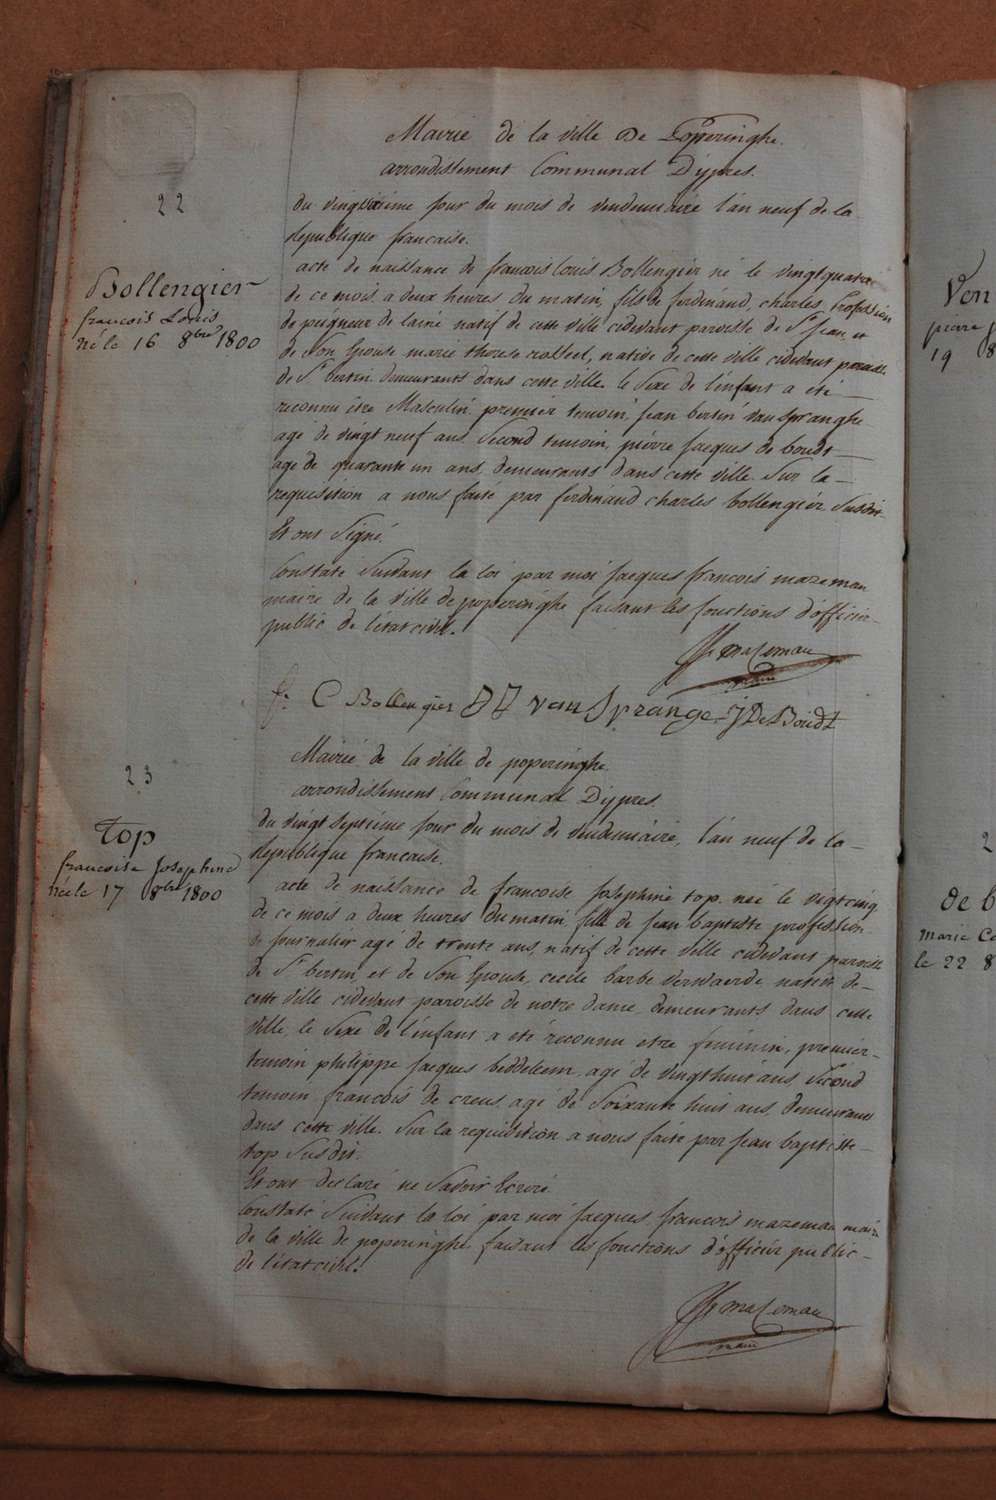 22
Bollengier
francois Louis
né le 16 8bre 1800
Mairie de la ville De Popperinghe.
arrondissement Communal Dypres.
du vingtsixieme jour du mois de vendemiaire l'an neuf de la
Republique francaise.
acte de naissance de francois Louis Bollengier né le vingtquatre
de ce mois a deux heures du matin, fils de ferdinand, charles, Profession
de peigneur de laine natif de cette ville cidevant paroisse de St Jean, et
de son Epouse marie therese, native de cette ville cidevant paroisse
de St bertin demeurants dans cette ville. le sexe de l'enfant a été
reconnu être Masculin premier temoin, Jean bertin van Spranghe
agé de vingt neuf ans, Second temoin, pierre Jacques de boudt
agé de quarante un ans, demeurants dans cette ville. Sur la
requisition a nous faite par ferdinand charles bollengier Susdit
Et ont Signé.
Constaté Suivant la loi par moi Jacques francois mazeman
maire de la ville de poperinghe faisant les fonctions d'officier
public de l'état civil.
mazeman
maire
f. C Bollengier JB van Sprange J De Boudt
23
top
francoise Josephine
née le 17 8bre 1800
Mairie de la ville de poperinghe
arrondissement Communal Dypres
du vingt septieme jour du mois de Vendemiaire, l'an neuf de la
Republique francaise.
acte de naissance de francoise Josephine top. née le vigtcinq
de ce mois a deux heures du matin fille de Jean baptiste profession
de journalier agé de trente ans, natif de cette ville cidevant paroisse
de St bertin, et de son Epouse, cecile barbe verwaerde, native de
cette ville cidevant paroisse de notre dame, demeurants dans cette
ville, le sexe de l'enfant a été reconnu etre feminin, premier
temoin philippe Jacques beddeleem, agé de vingthuit ans Second
temoin francois de creus, agé de Soixante huit ans, demeurants
dans cette ville. Sur la requisition a nous faite par Jean baptiste
top Susdit.
Et ont declaré ne Savoir Ecrire
Constaté Suivant la loi par moi Jacques francois mazeman maire
de la ville de poperinghe faisant les fonctions d'officier public
de l'état civil.
mazeman
maire
Ven
pierre J
19 8
2
de b
Marie Ce
le 22 8